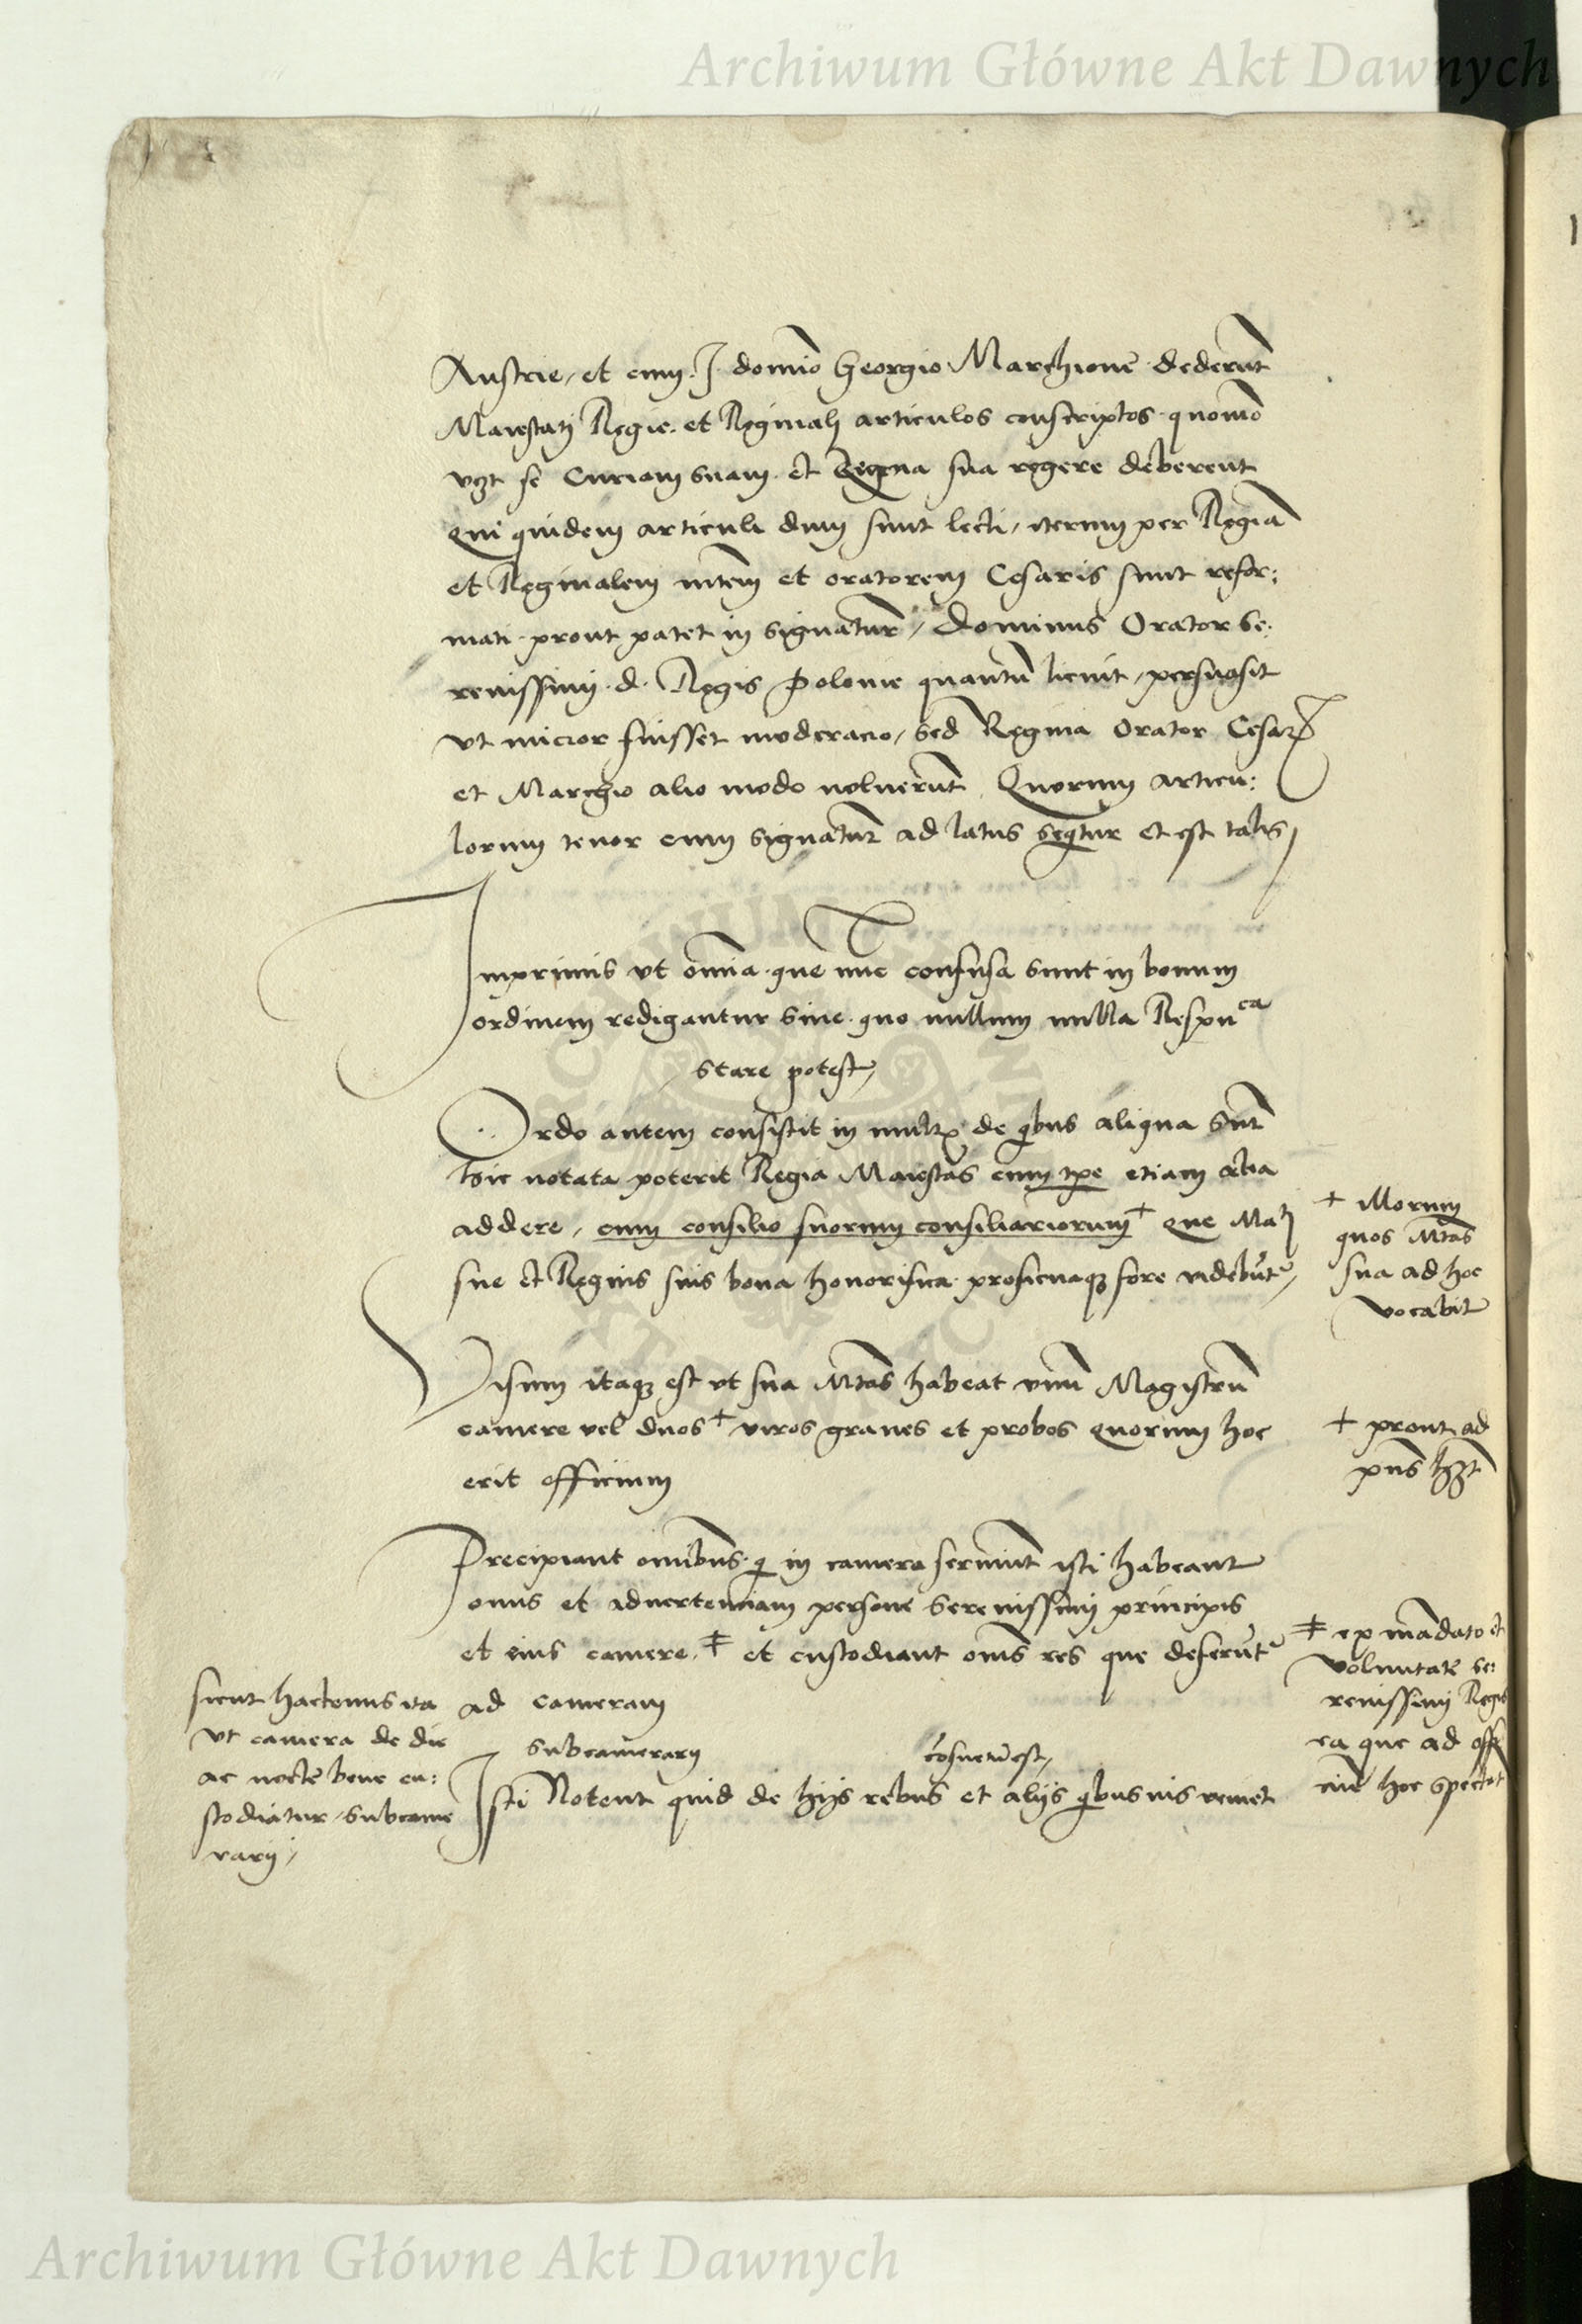 Archiwum Główne Akt Dawnych
Austrie, et cum. J. domiō Georgio Marchione dederūt
Maiestati Regie. et Reginali articulos conscriptos quomō
vczt se Curiam suam et Regna sua regere deberent
qui quidem articuli dum sunt lecti, iterum per Regiā
et Reginalem mtem et oratorem Cesaris sunt refor:
mati prout patet in signatur, Dominus Orator Se:
renissimi d. Regis Polonie quantū licuit, persuasit
vt micior fuisset moderacio, sed Regina Orator Cesar
et Marchio alio modo noluerūt. Quorum articu:
lorum tenor cum signatur ad latus seqtur et est talis
Inprimis vt omīa que nūc confusa sunt in bonum
ordinem redigantur sine quo nullum nulla Respuca
stare potest,
Ordo autem consistit in mult de qbus aliqua sūt
hic notata poterit Regia Maiestas cum tpe etiam alia
addere, cum consilio suorum consiliariorum + que Mati
sue et Regnis suis bona honorifica proficuaq fore videbūt,
+ Illorum
quos Mtas
sua ad hoc
vocabit
Visum itaq est vt sua Mtas habeat vnū Magistrū
camere vel duos + viros graues et probos quorum hoc
erit officium
+ prout ad
pns hzt
Precipiant omibus q in camera seruiūt isti habeant
onus et aduertenciam persone Serenissimi principis
et eius camere, ‡ et custodiant omes res que deferūt
ad cameram
‡ ex mādato et
voluntate se:
renissimi Regis
ea que ad offi
ciū hoc spectāt
sicut hactenus ita
vt camera de die
ac nocte bene cu:
stodiatur, subcame
rarij,
subcamerarij
cōsuetū est,
Isti Notent quid de hijs rebus et alijs qbusuis
Archiwum Główne Akt Dawnych